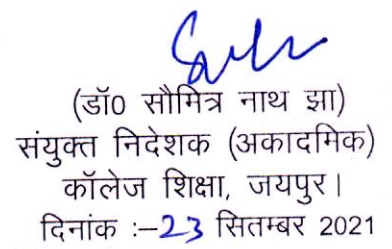 (डॉ0 सौमित्र नाथ झा)
संयुक्त निदेशक (अकादमिक)
कॉलेज शिक्षा, जयपुर।
दिनांक :–23 सितम्बर 2021